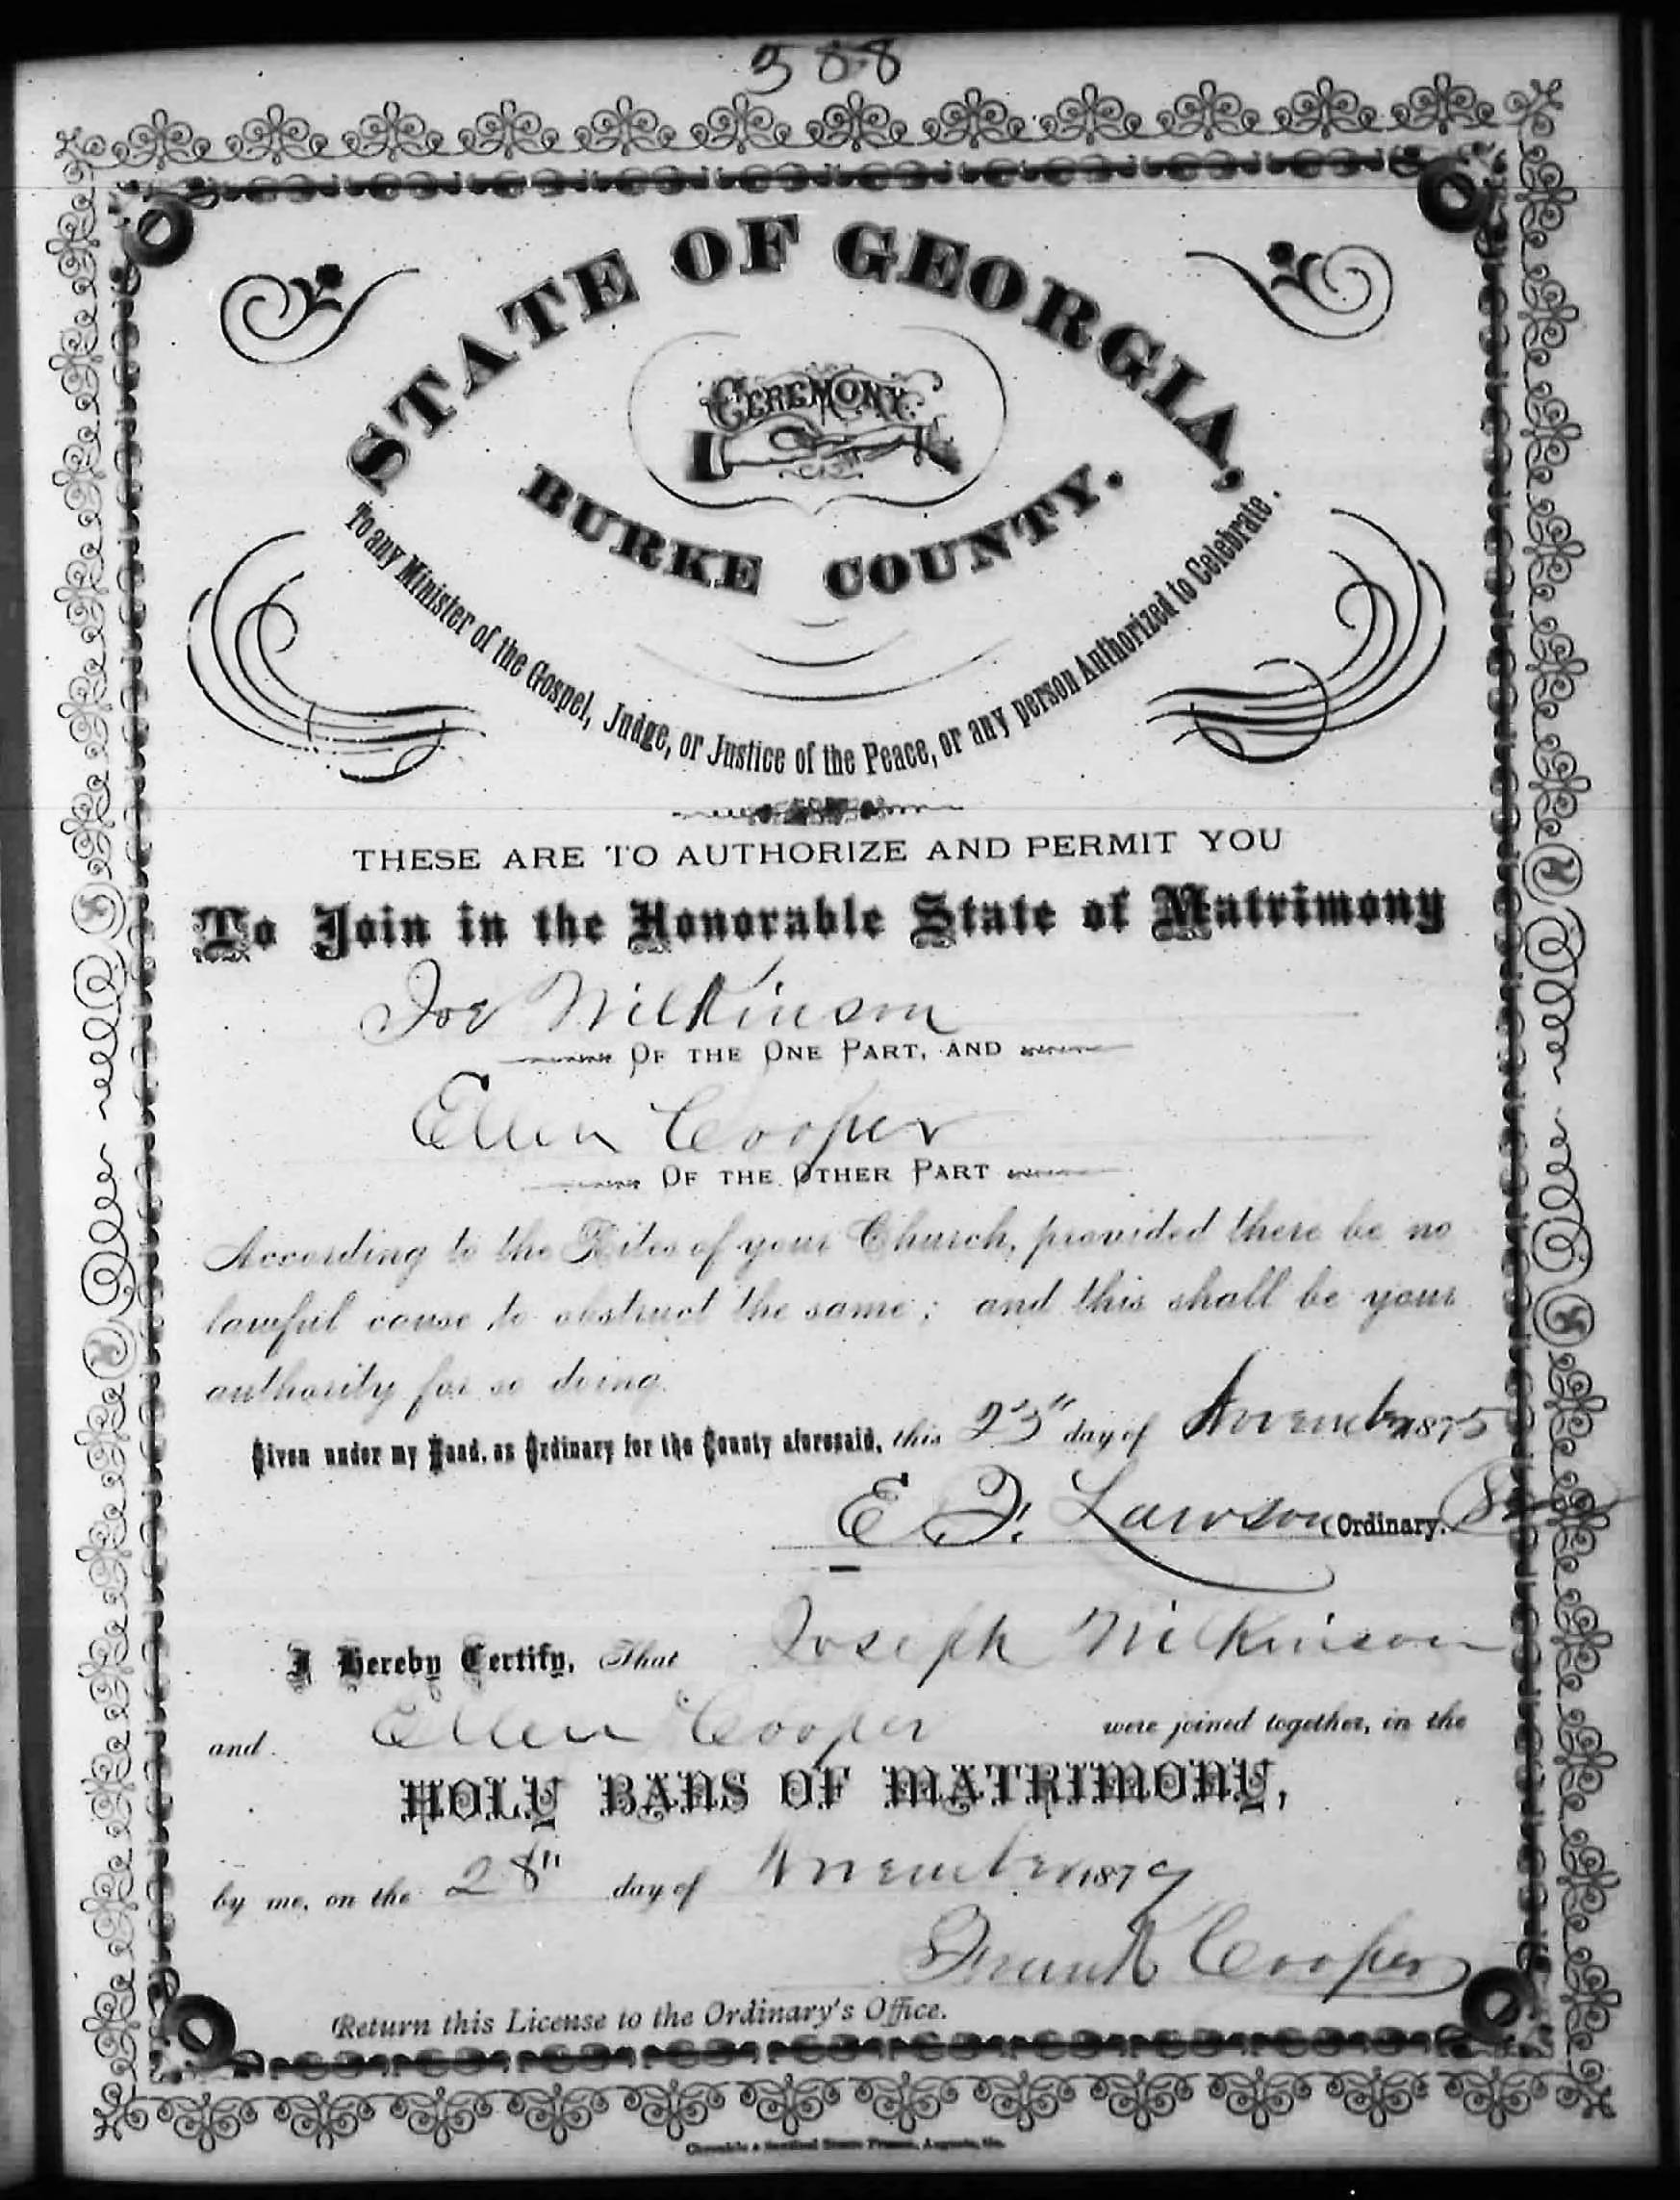 388
STATE OF GEORGIA,
CEREMONY.
BURKE COUNTY.
To any Minister of the Gospel, Judge, or Justice of the Peace, or any person Authorized to Celebrate.
THESE ARE TO AUTHORIZE AND PERMIT YOU
To Join in the Honorable State of Matrimony
Joe Wilkinson
OF THE ONE PART, AND
Ellen Cooper
OF THE OTHER PART
According to the Rites of your Church, provided there be no
lawful cause to obstruct the same; and this shall be your
authority for so doing.
Given under my Hand, as Ordinary for the County aforesaid, this 25" day of November 1875
E F. Lawson Ordinary.
I Hereby Certify, That Joseph Wilkinson
and Ellen Cooper were joined together, in the
HOLY BANS OF MATRIMONY,
by me, on the 28" day of November 1879
Frank Cooper
Return this License to the Ordinary's Office.
Chronicle & Sentinel Steam Presses, Augusta, Ga.